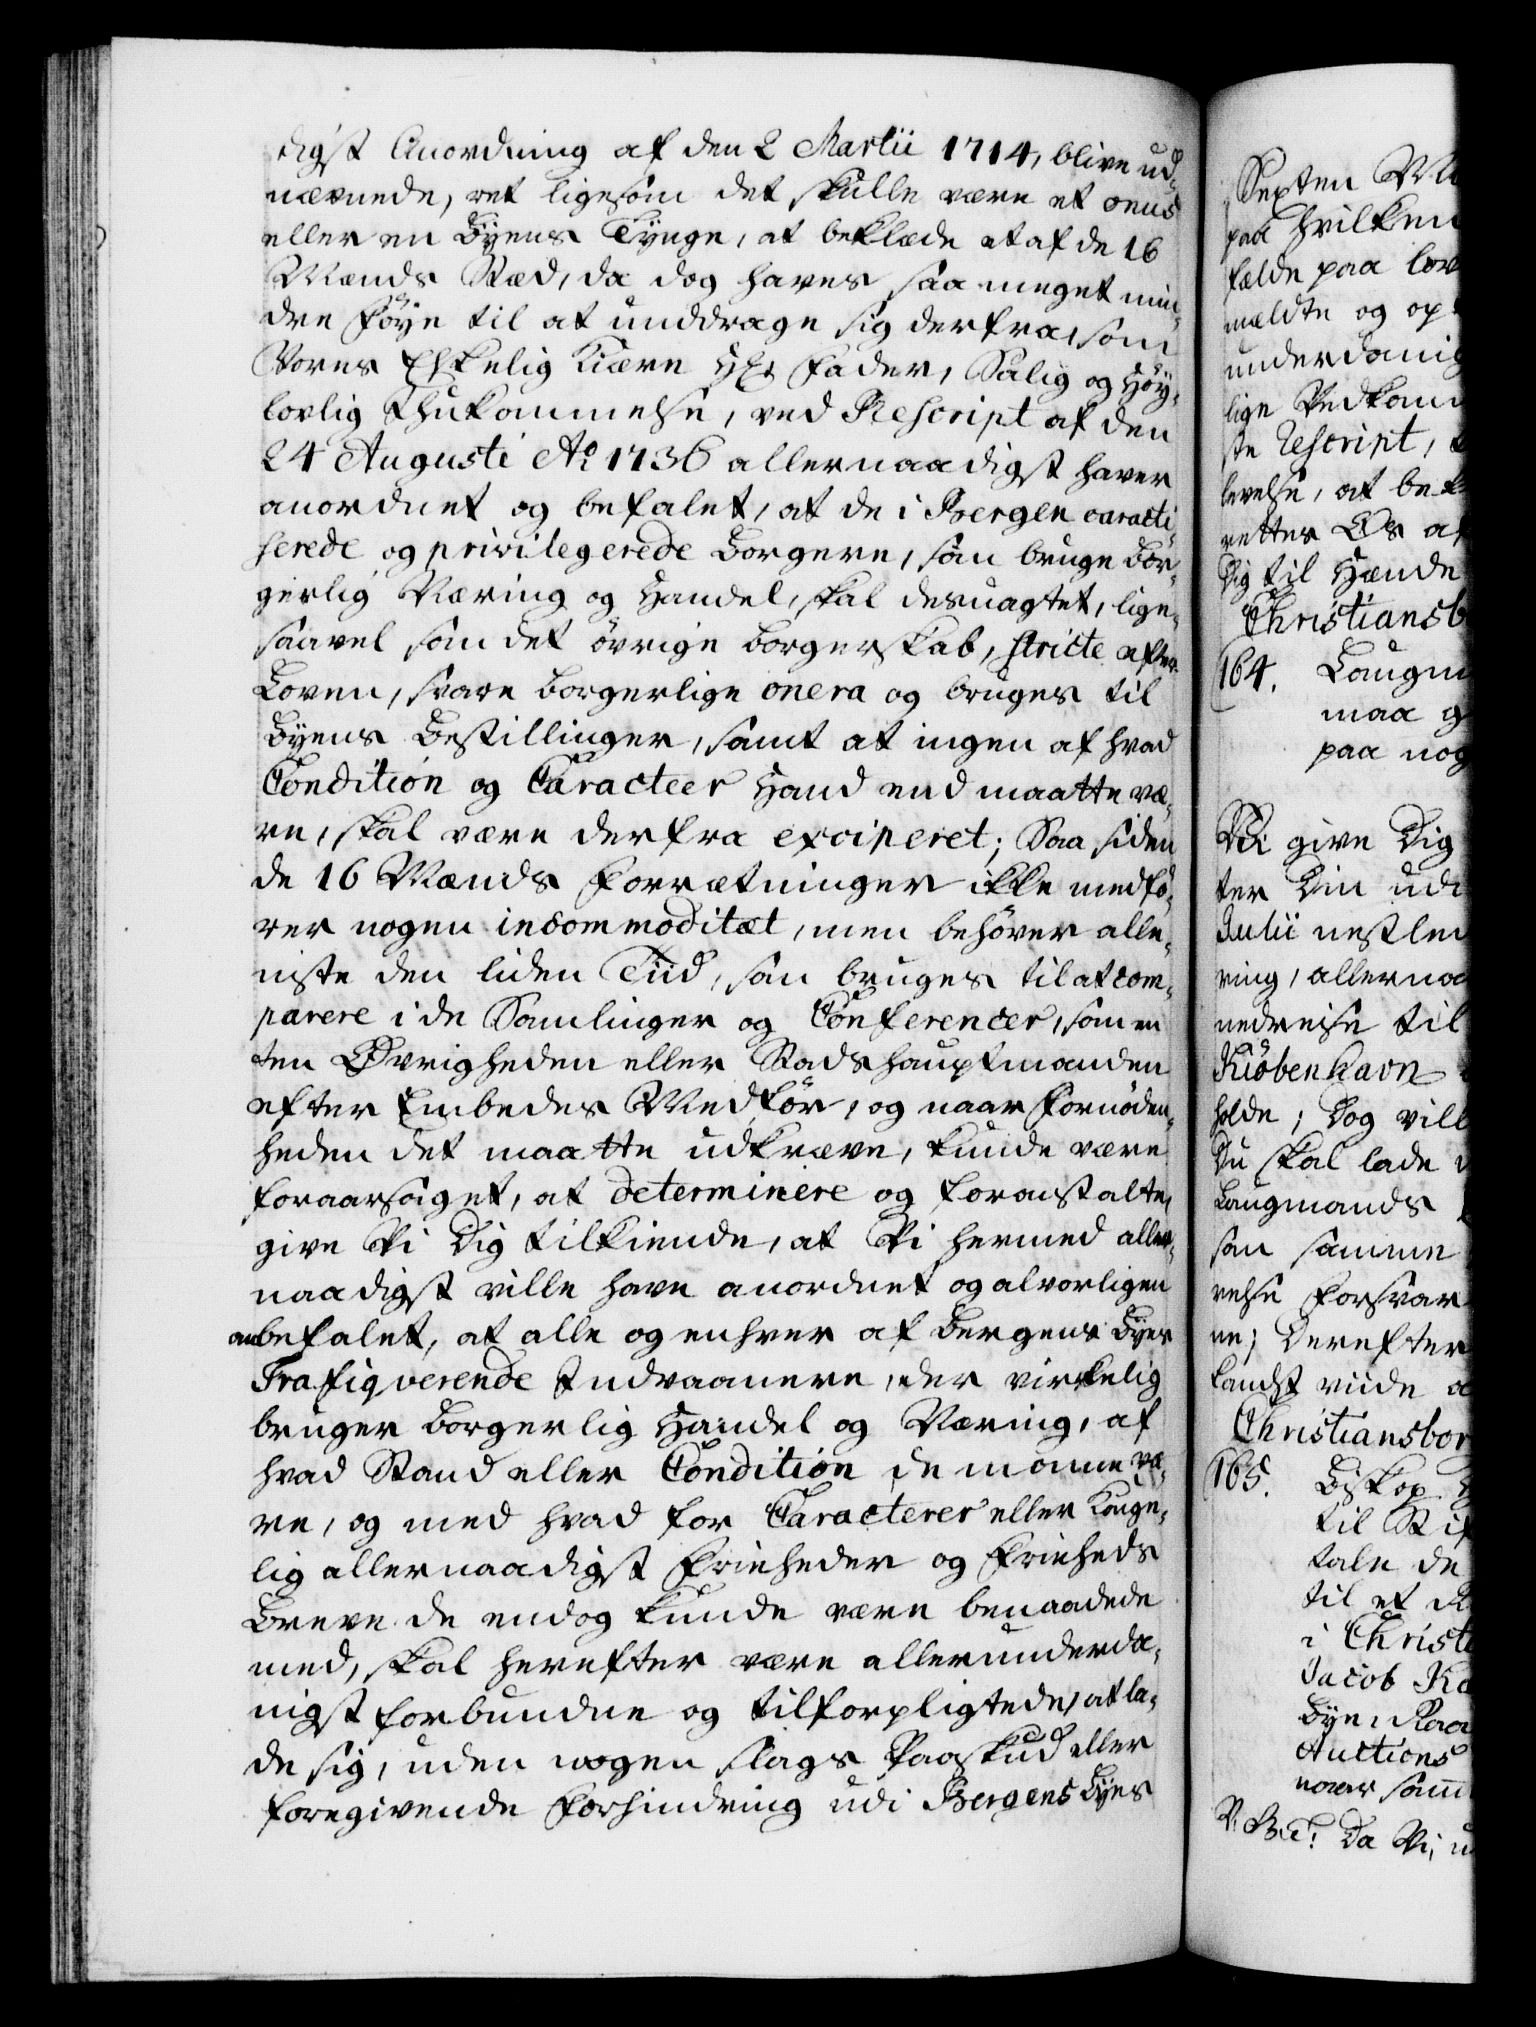 digst Anordning af den 2 Martii 1714, blive ud-
nævnede, ret ligesom det skulle være et onus
eller en Byens Tynge, at beklæde et af de 16
Mænds Stæd, da dog haves saa meget min-
dre Føye til at unddrage sig derfra, som
Vores Elskelig Kiære Hr. Fader, Salig og Høy-
lovlig Ihukommelse, ved Rescript af den
24 Augusti Ao 1736 allernaadigst haver
anordnet og befalet, at de i Bergen caracti-
serede og privilegerede Borgere, som bruge Bor-
gerlig Næring og Handel, skal desuagtet, lige-
saavel som det øvrige Borgerskab, stricte efter
Loven, svare borgerlige onera og bruges til
Byens Bestillinger, samt at ingen af hvad
Condition og Caracteer Hand end maatte væ-
re, skal være derfra exciperet; Saa siden
de 16 Mænds Forrætninger ikke medfø-
rer nogen incommoditæt, men behøver alle-
niste den liden Tiid, som bruges til at com-
parere i de Samlinger og Conferencer, som en
ten Øvrigheden eller Stadshauptmanden
efter Embedes Medfør, og naar Fornøden-
heden det maatte udkræve, kunde være
foraarsaget, at determinere og foranstalte,
give Vi Dig tilkiende, at Vi hermed aller-
naadigst ville have anordnet og alvorligen
anbefalet, at alle og enhver af Bergens Byes
Trafiqverende Indvaanere, der virkelig
bruger Borgerlig Handel og Næring, af
hvad Stand eller Condition de monne væ-
re, og med hvad for Caracterer eller Konge-
lig allernaadigst Friheder og Friheds
Breve de endog kunde være benaadede
med, skal herefter være allerunderda-
nigst forbundne og tilforpligtede, at la-
de sig, uden nogen slags Paaskud eller
foregivende Forhindring udi Bergens Byes
Septen
paa hvilken
falde paa lov
meldte og op
underdanig
lige Vedkom
ste Rescript,
levelse, at bek
retter Os af
Dig til Hænde
Christiansb
164. Laugm
maa g
paa nog
Vi give Dig
ter Din udi
Julii nestle
ring, allernaa
nedreise til
Kiøbenhavn
holde; Dog vill
Du skal lade
Laugmands
som samme
velse forsvar
ne; Derefter
Landst vide
Christiansbor
165. Biskop
til Stif
tale de
til et R
i Christi
Jacob Ka
Bye, Raa
Auctions
naar sam
Da Vi, u